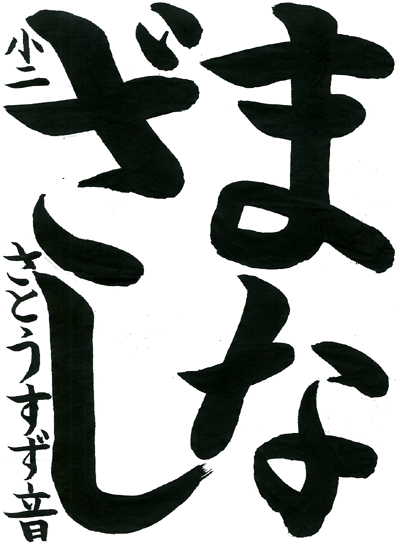 まな
ざし
小二
さとうすず音